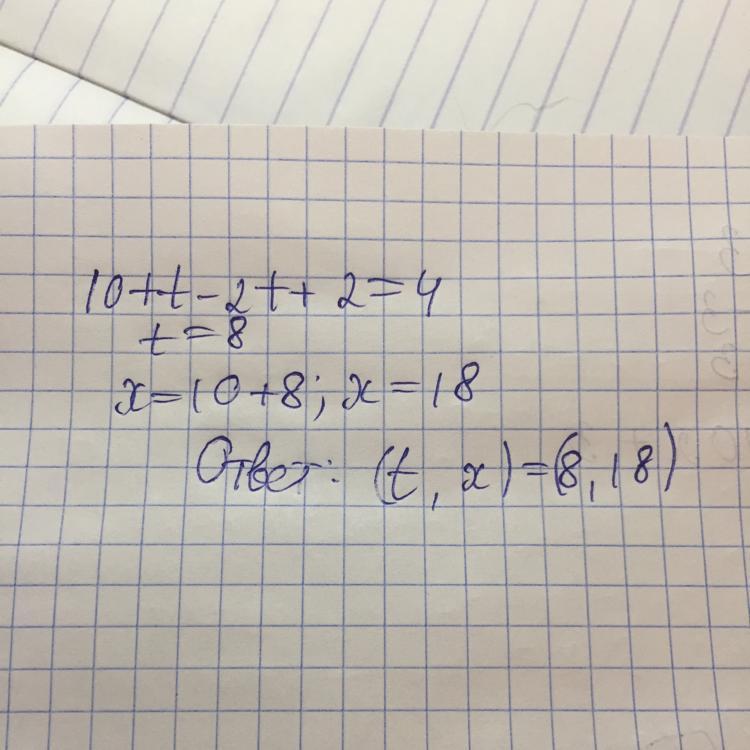 10+t-2t+2=4
t=8
x=10+8; x=18
Ответ: (t, x)=(8,18)